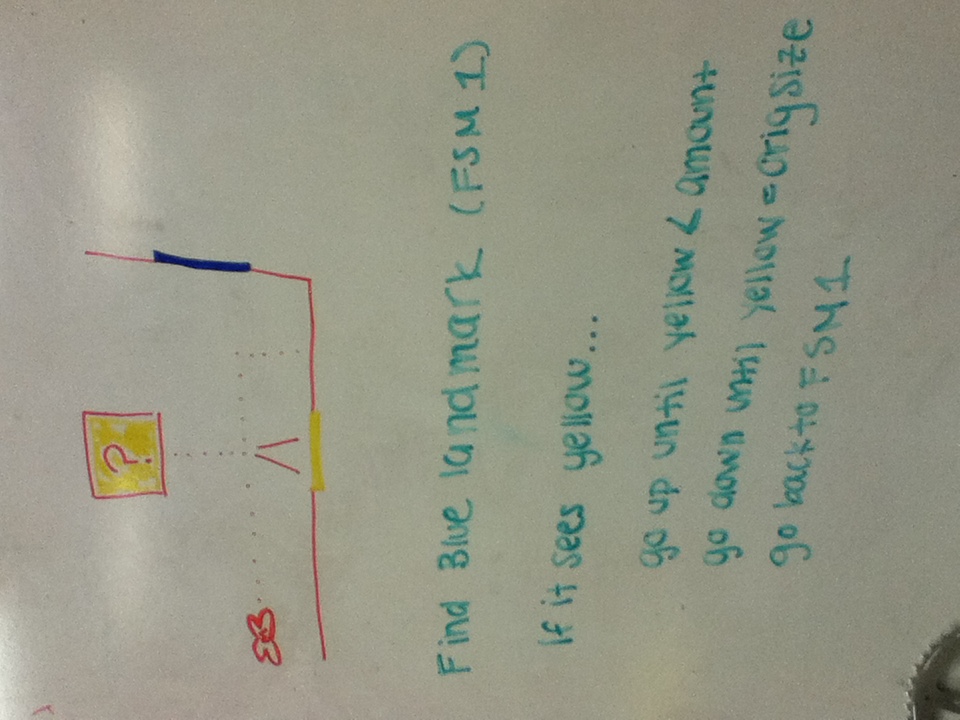 ?
Find Blue landmark (FSM 1)
If it sees yellow...
go up until yellow < amount
go down until yellow = origsize
go back to FSM 1